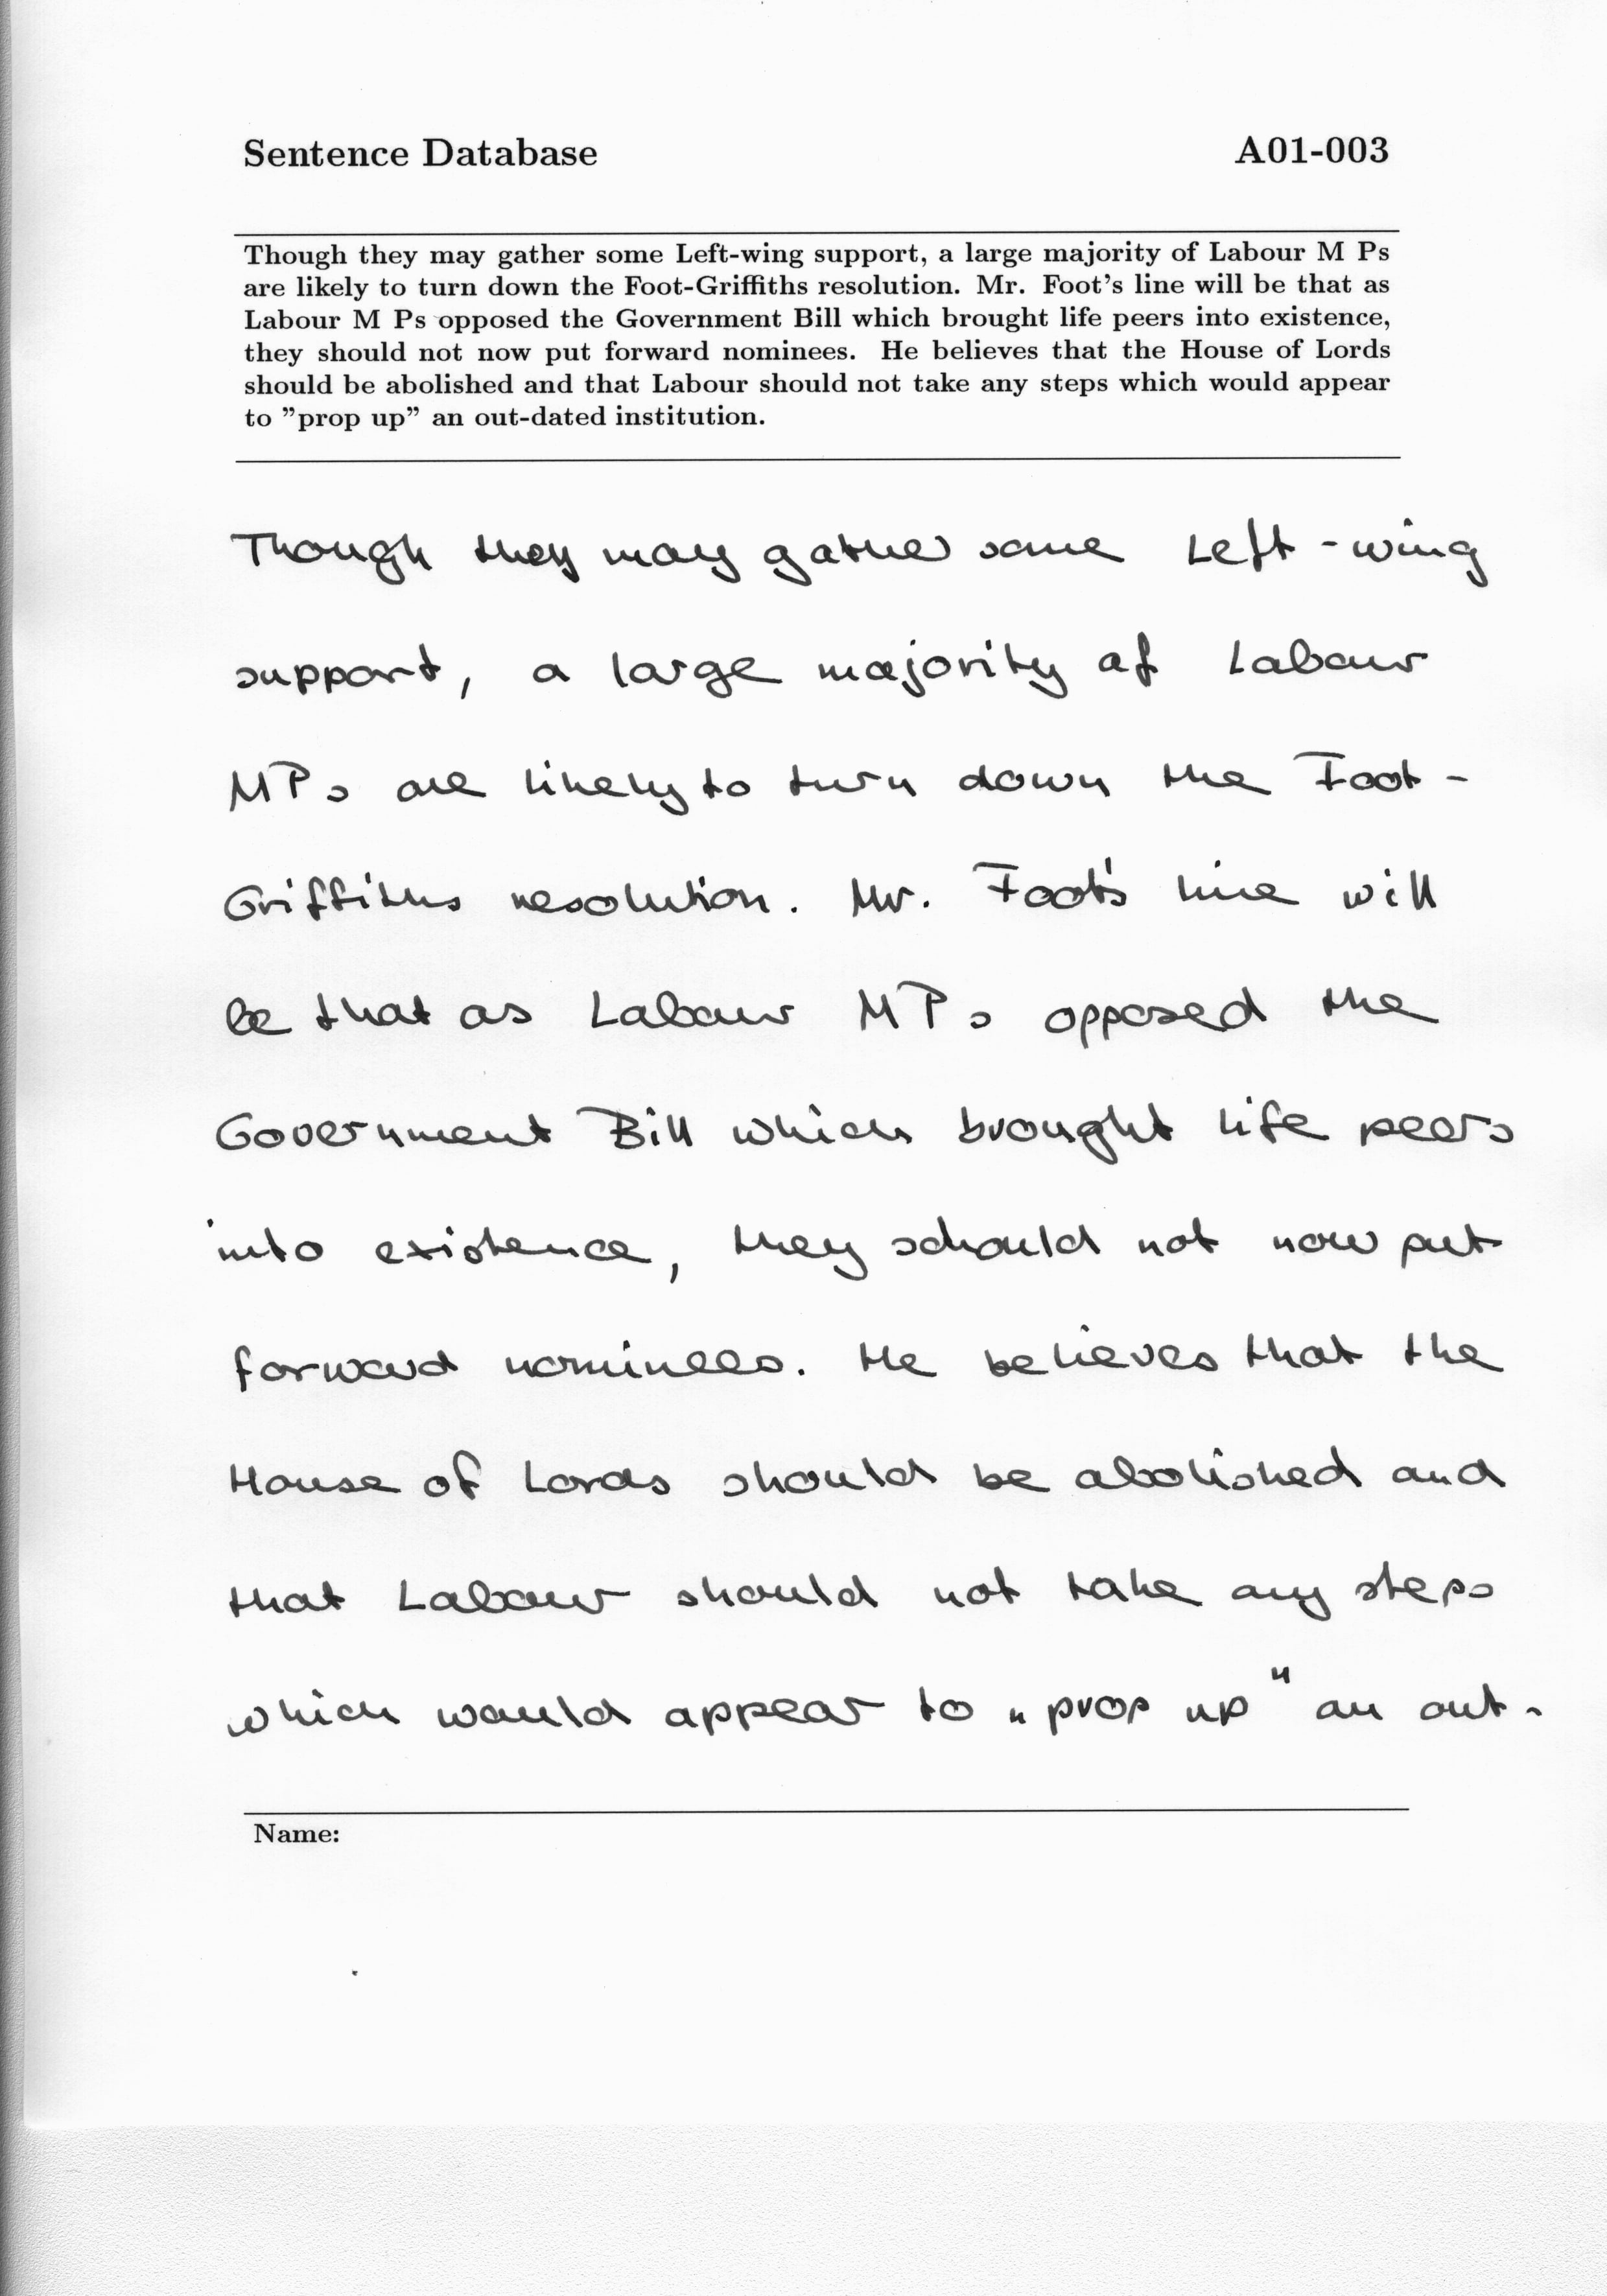 Sentence Database A01-003
Though they may gather some Left-wing support, a large majority of Labour M Ps
are likely to turn down the Foot-Griffiths resolution. Mr. Foot's line will be that as
Labour M Ps opposed the Government Bill which brought life peers into existence,
they should not now put forward nominees. He believes that the House of Lords
should be abolished and that Labour should not take any steps which would appear
to ”prop up” an out-dated institution.
Though they may gather some Left-wing
support, a large majority of Labour
MPs are likely to turn down the Foot-
Griffiths resolution. Mr. Foot's line will
be that as Labour MPs opposed the
Government Bill which brought life peers
into existence, they schould not now put
forward nominees. He believes that the
House of Lords should be abolished and
that Labour should not take any steps
which would appear to „prop up" an out-
Name: